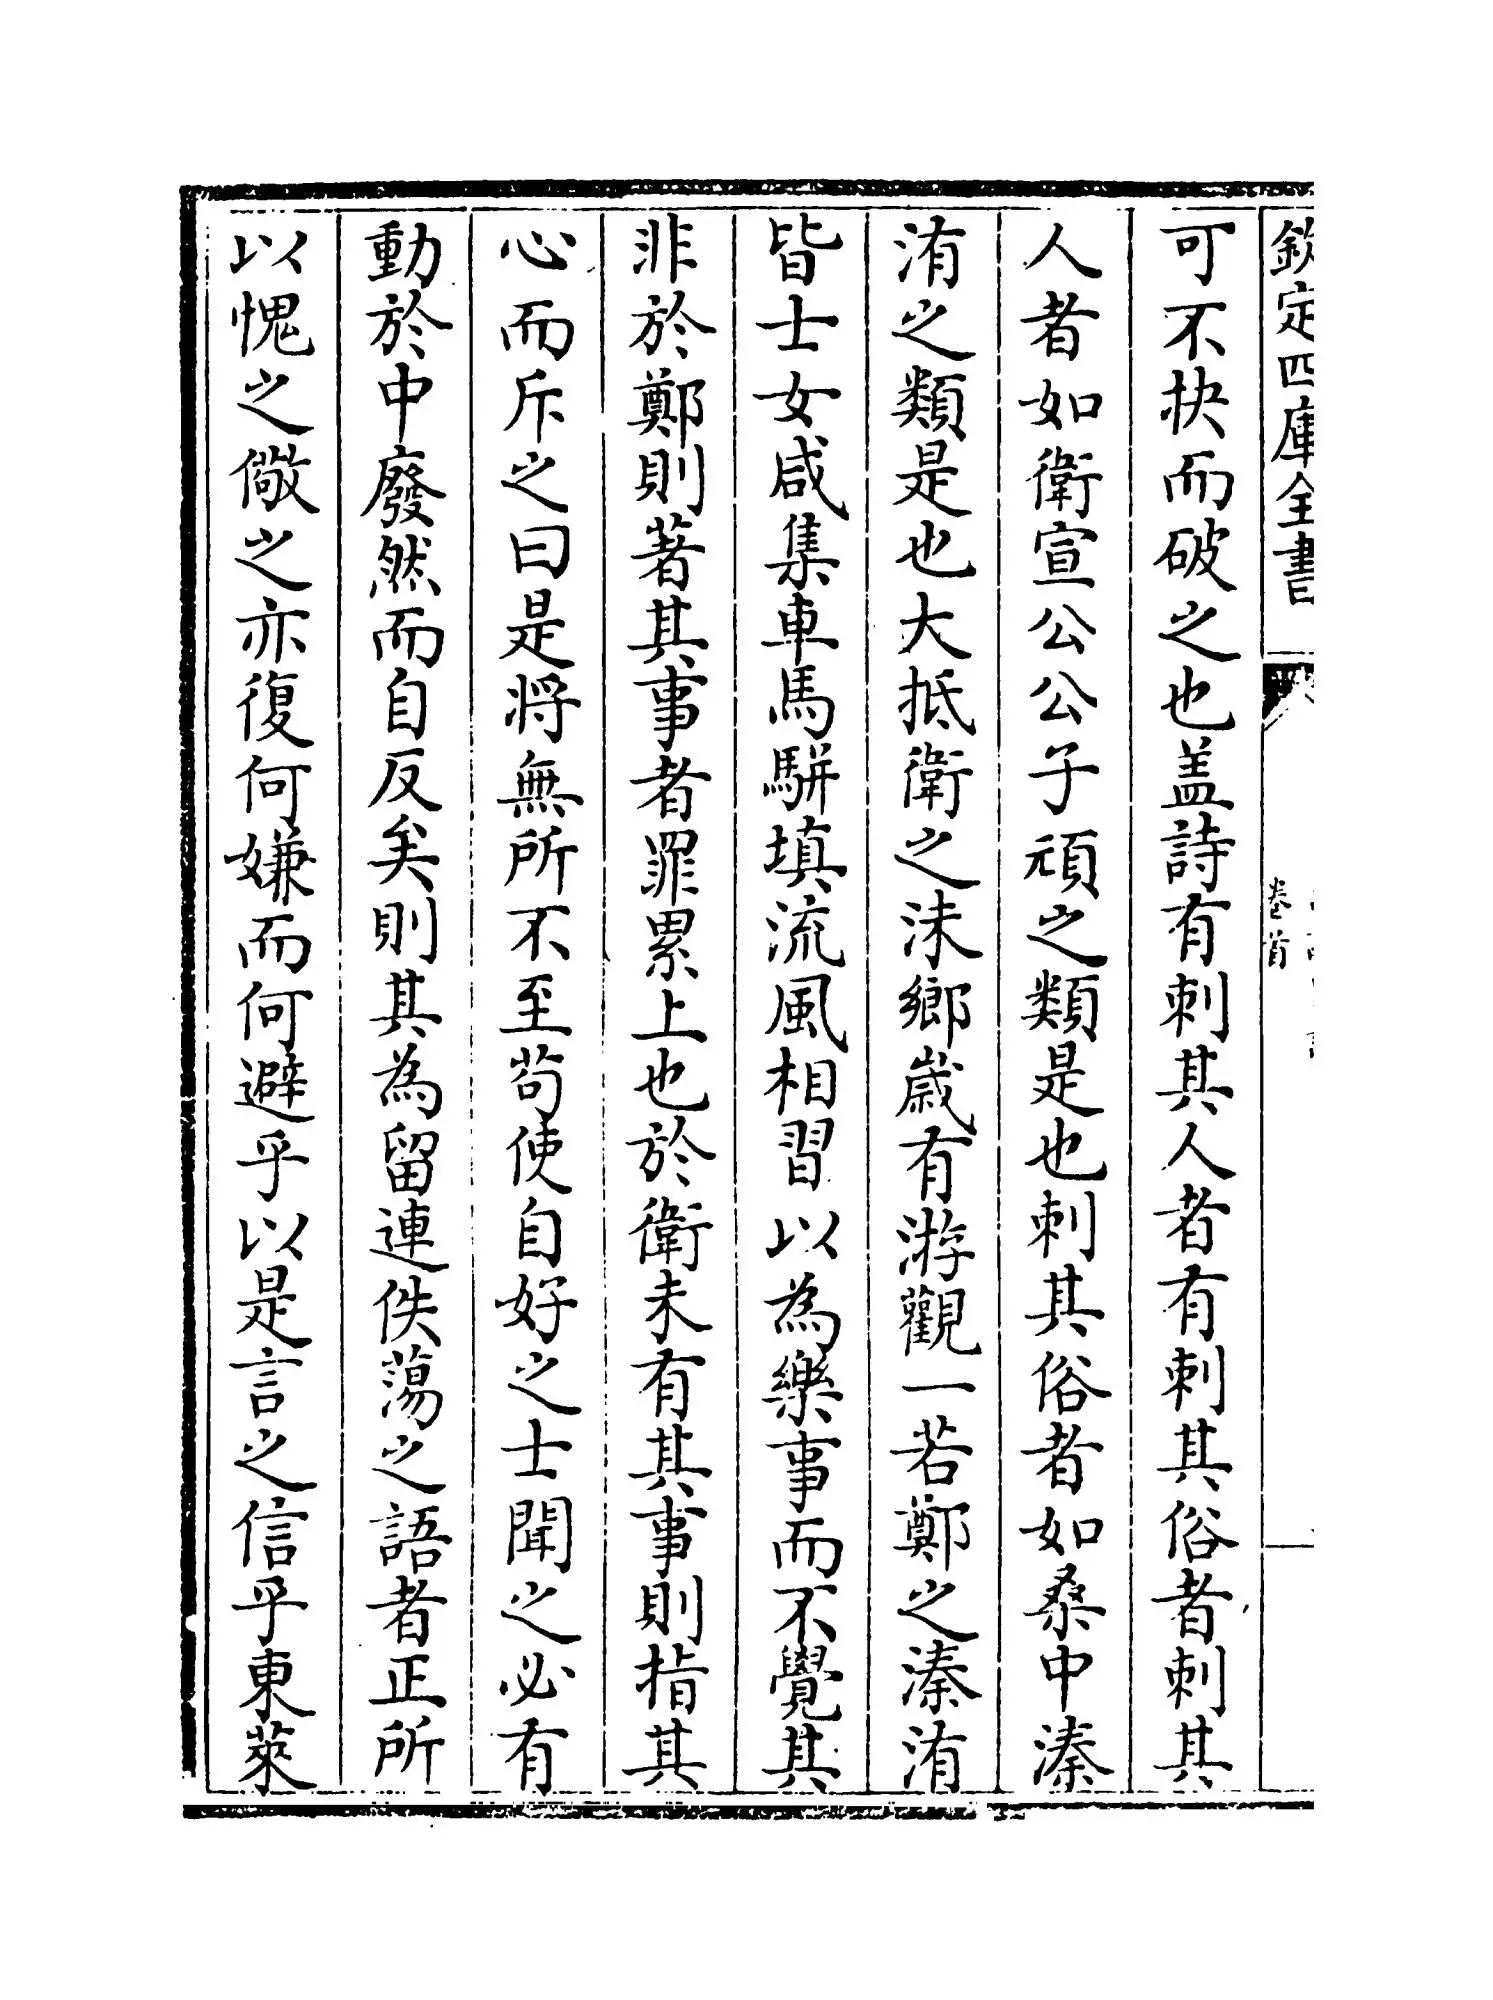 欽定四庫全書
卷首
可不抉而破之也盖詩有刺其人者有刺其俗者刺其
人者如衛宣公公子頑之類是也刺其俗者如桑中溱
洧之類是也大抵衛之沬鄉歲有游觀一若鄭之溱洧
皆士女咸集車馬駢填流風相習以為樂事而不覺其
非於鄭則著其事者罪累上也於衛未有其事則指其
心而斥之曰是將無所不至苟使自好之士聞之必有
動於中廢然而自反矣則其為留連佚蕩之語者正所
以愧之儆之亦復何嫌而何避乎以是言之信乎東萊